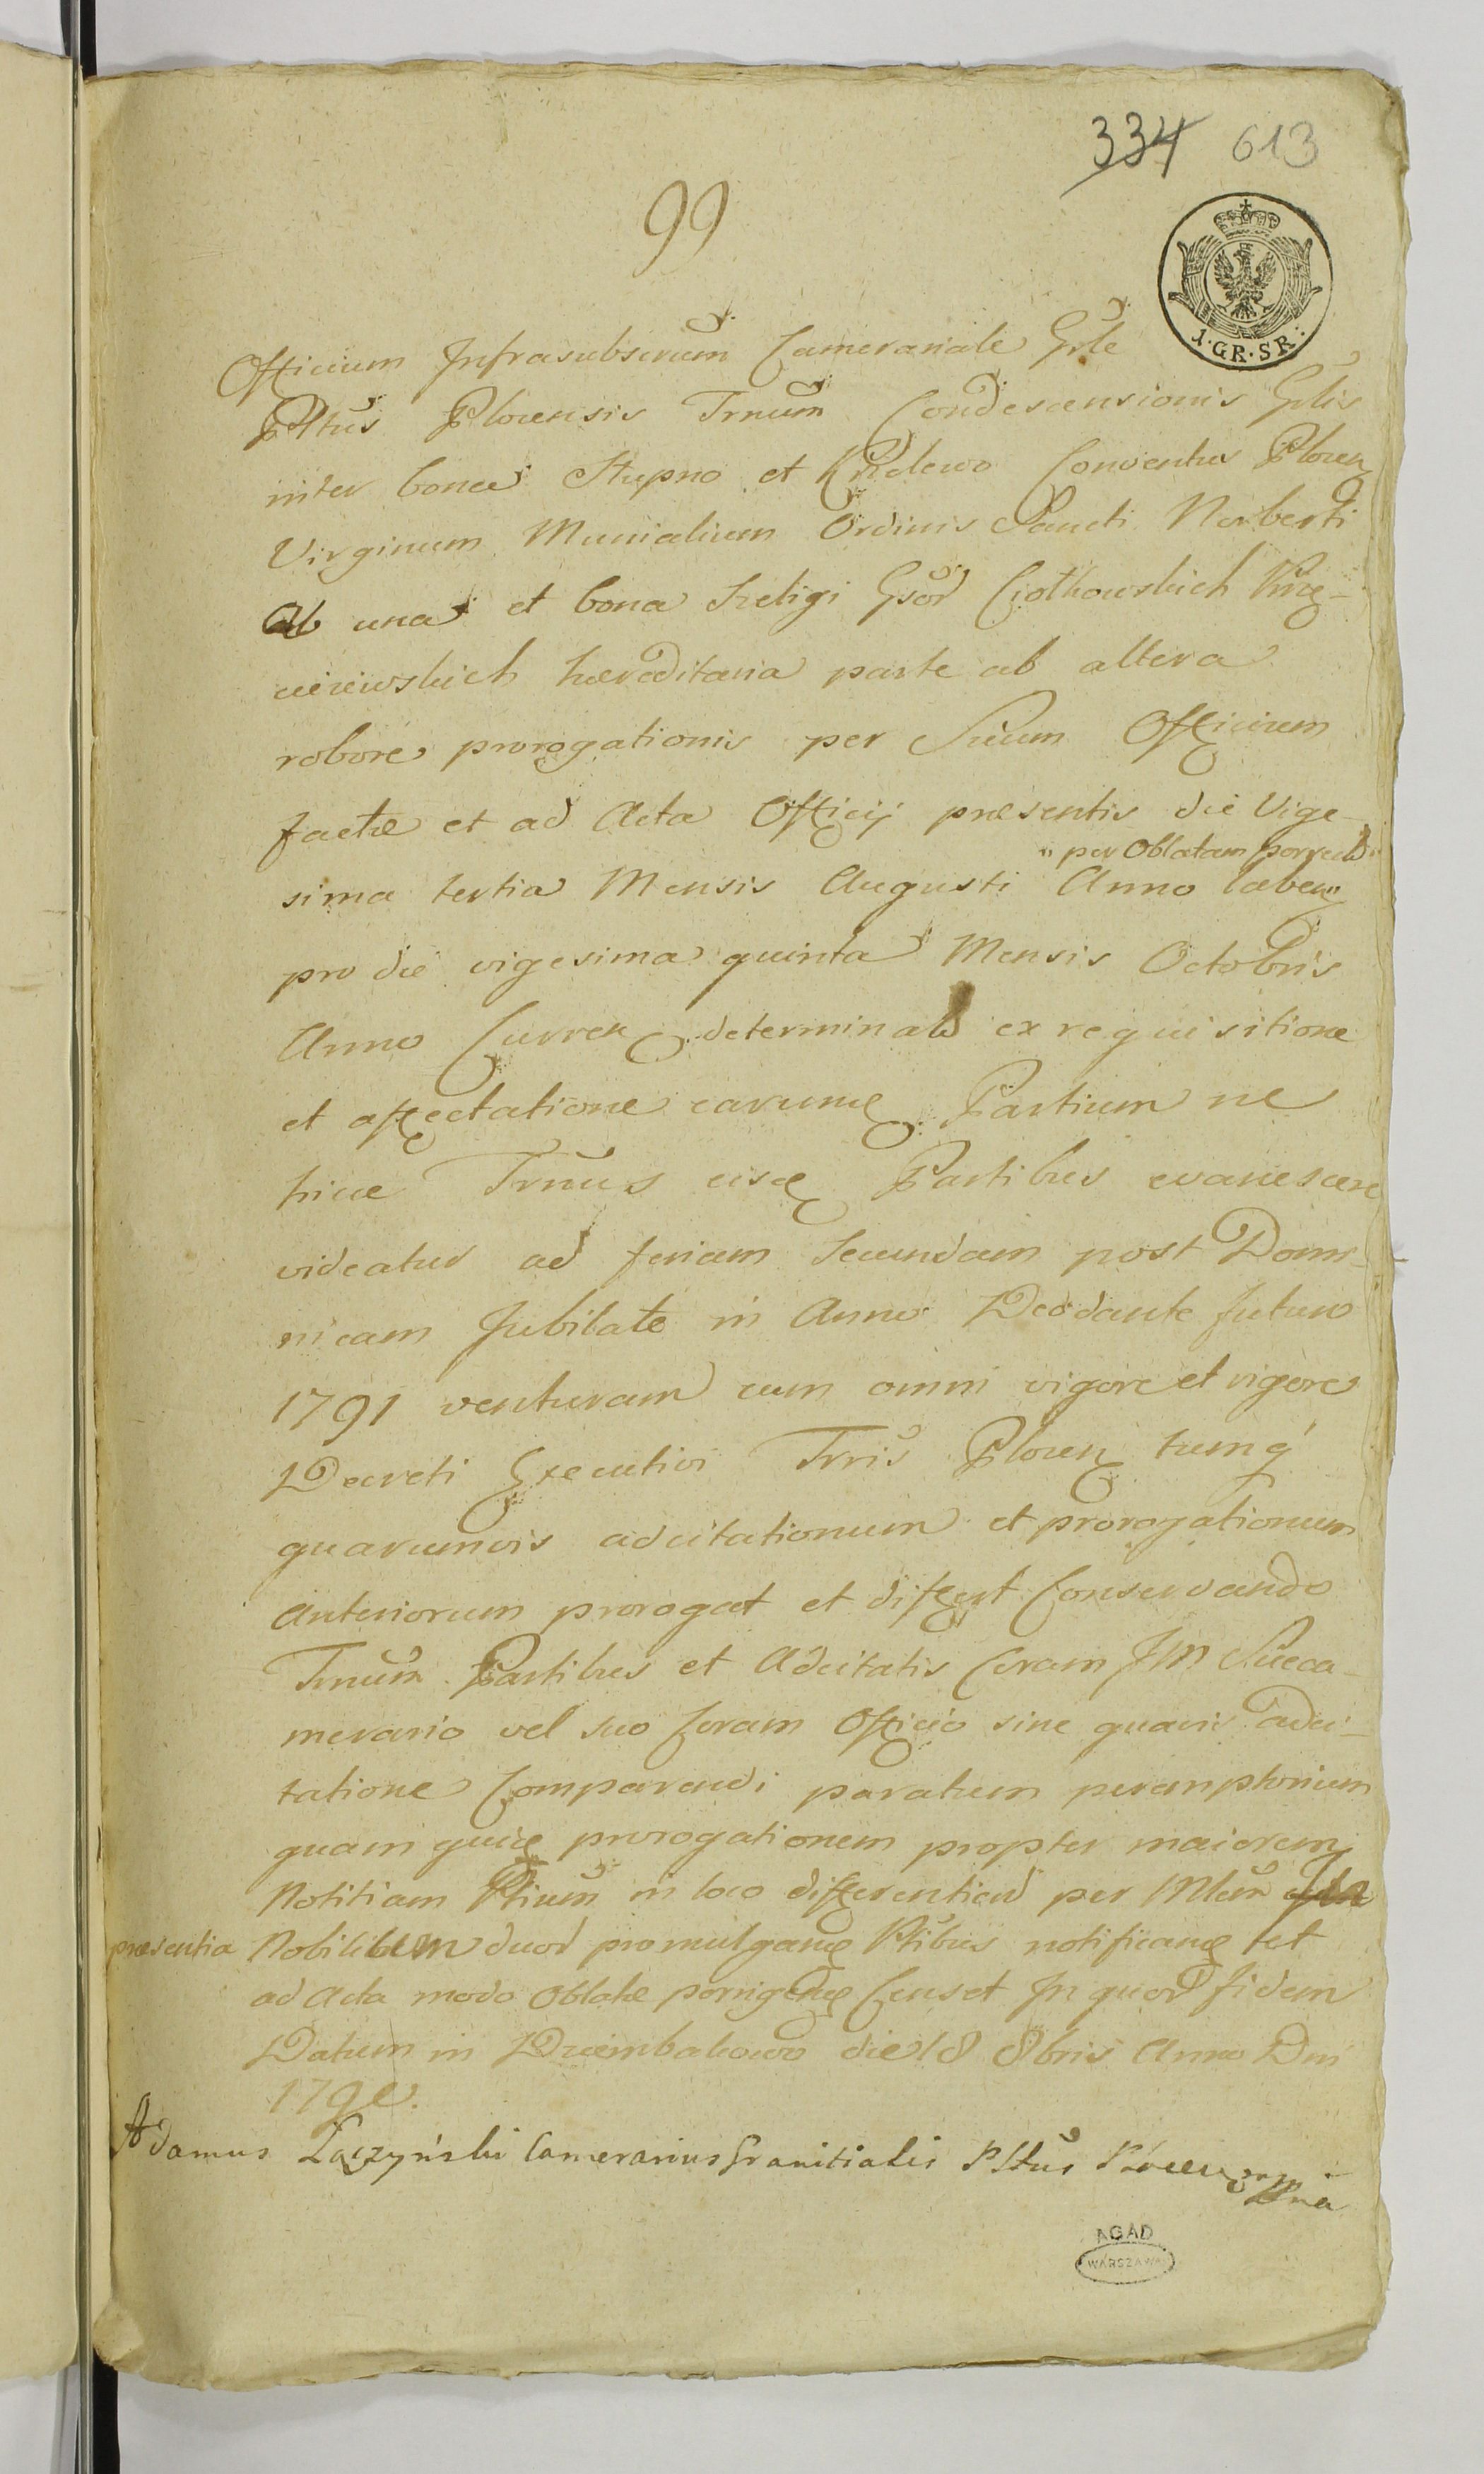 334 613
99
1. GR. SR.
Officium Infrasubscrum Camerariale Grle
Pttus Plocensis Trnum Condescensionis Grlis
inter bona Stupno et Conventus Plocen
Virginum Monialium Ordinis Sancti Norberti
Ab una et bona Szeligi Gsor Ciołkowskich
hæreditaria parte ab altera
robore prorogationis per Suum Officium
factæ et ad Acta Officij præsentis die Vige-
per Oblatam porrectæ
sima tertia Mensis Augusti Anno laben
pro die vigesima quinta Mensis Octobris
Anno Curren determinatæ ex requisitione
et affectatione earumq Partium ne
hicce Trnus eisq Partibus evanescere
videatur ad feriam Secundam post Domi-
nicam Jubilate in Anno Deodante futuro
1791 venturam cum omni vigore et rigore
Decreti Executivi Trris Plocen tumq
quarumvis adcitationum et prorogationum
Anteriorum prorogat et differt Conservando
Trnum Partibus et Adcitatis Coram JM Succa-
merario vel suo Coram Officio sine quavis adci-
tatione Comparendi paratum peremptorium
quam quidē prorogationem propter maiorem
Notitiam Ptium in loco differentiar per Mlem
præsentia Nobilium duor promulganq Ptibus notificanq et
ad Acta modo Oblatæ porrigenq Censet In quor fidem
Datum in Dziembakowo die 18 8bris Anno Dni
1790.
Adamus Łączyński Camerarius Granitialis Pttus Plocen mpria
AGAD
WARSZAWA